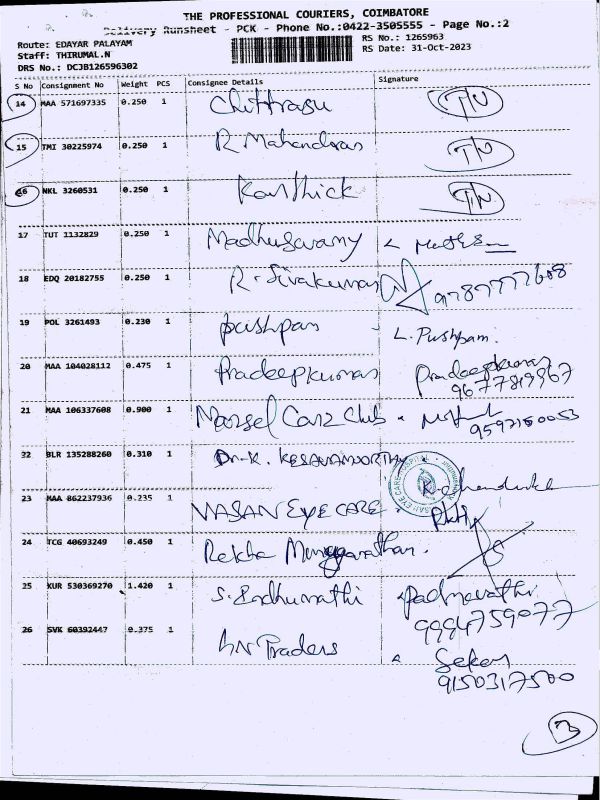 THE PROFESSIONAL COURIERS, COIMBATORE
Delivery Runsheet - PCK - Phone No.:0422-3505555 - Page No.:2
Route: EDAYAR PALAYAM
RS No.: 1265963
Staff: THIRUMAL.N
RS Date: 31-Oct-2023
DRS No.: DCJB126596302
S No Consignment No Weight PCS Consignee Details Signature
14 MAA 571697335 0.250 1 Chittrasu
15 TMI 30225974 0.250 1 R. Mahendran
16 NKL 3260531 0.250 1 Karthick
17 TUT 1132829 0.250 1 Madhuswamy
18 EDQ 20182755 0.250 1 R. Sivakumar 9787777608
19 POL 3261493 0.230 1 pushpam L. Pushpam.
20 MAA 104028112 0.475 1 Pradeepkumar Pradeepkumar
9677819967
21 MAA 106337608 0.900 1 Carz Club
9597150053
22 BLR 135288260 0.310 1 Dr. K. KESAVAMOORTHY
23 MAA 862237936 0.235 1 VASAN EYE CARE
24 TCG 40693249 0.450 1 Rekha
25 KUR 530369270 1.420 1 S. Indhumathi Padmavathi
9994759077
26 SVK 60392447 0.375 1 LN Traders Sekar
9150317500
3